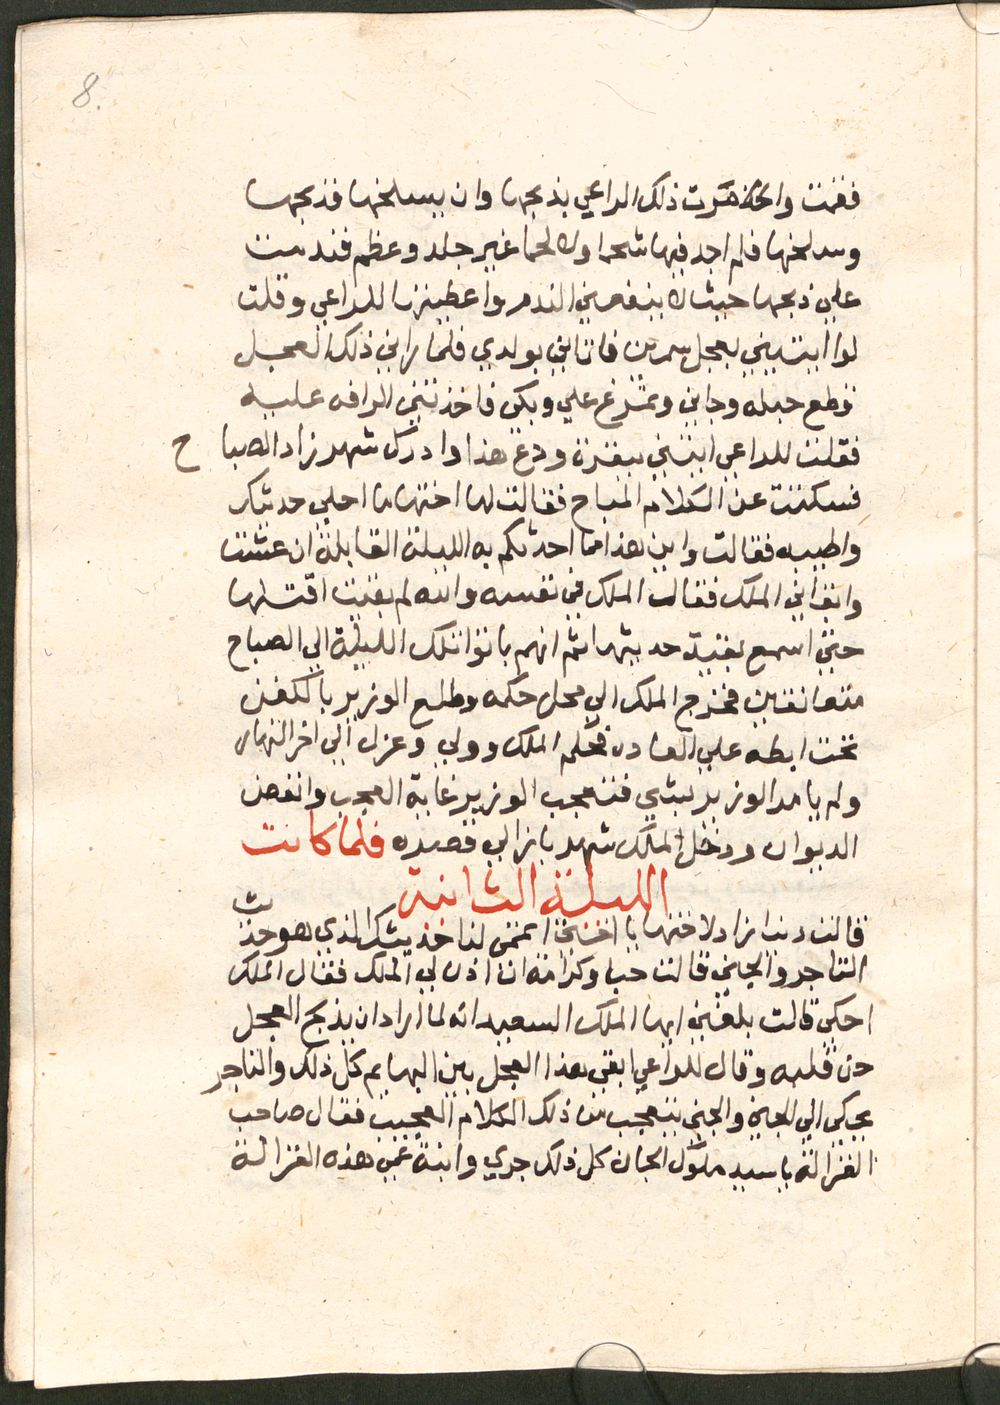 8.
فقمت وامرت ذلك الراعي بذبحها وان يسلخها فذبحها
وسلخها فلم اجد فيها شحما ولا لحما غير جلد وعظم فندمت
علي ذبحها حيث لا ينفعني الندم واعطيتها للراعي وقلت
له ايتيني بعجل سمين فاتاني بولدي فلما راني ذلك العجل
قطع حبله وجاني وتمرغ علي وبكي فاخذتني الرافه عليه
فقلت للراعي ايتني ببقرة ودع هذا وادرك شهرزاد الصباح
فسكتت عن الكلام المباح فقالت لها اختها ما احلي حديثك
واطيبه فقالت واين هذا مما احدثكم به الليلة القابلة ان عشت
وابقاني الملك فقال الملك في نفسه والله لم بقيت اقتلها
حتي اسمع بقية حديثها ثم انهم باتوا تلك الليلة الي الصباح
متعانقين فخرج الملك الي محل حكمه وطلع الوزير بالكفن
تحت ابطه علي العاده فحكم الملك وولي وعزل الي اخر النهار
ولم يامر الوزير بشي فتعجب الوزير غاية العجب وانفض
الديوان ودخل الملك شهربازالي قصره فلما كانت
الليلة الثانية
قالت دنيازاد لاختها يا اختي اتمي لنا حديثك الذي هو حديث
التاجر والجني قالت حبا وكرامه ان اذن لي الملك فقال الملك
احكي قالت بلغني ايها الملك السعيد انه لما اراد ان يذبح العجل
حن قلبه وقال للراعي ابقي هذا العجل بين البهايم كل ذلك والتاجر
يحكي الي الجني والجني يتعجب من ذلك الكلام العجيب فقال صاحب
الغزالة يا سيد ملوك الجان كل ذلك جري وابنة عمي هذه الغزالة